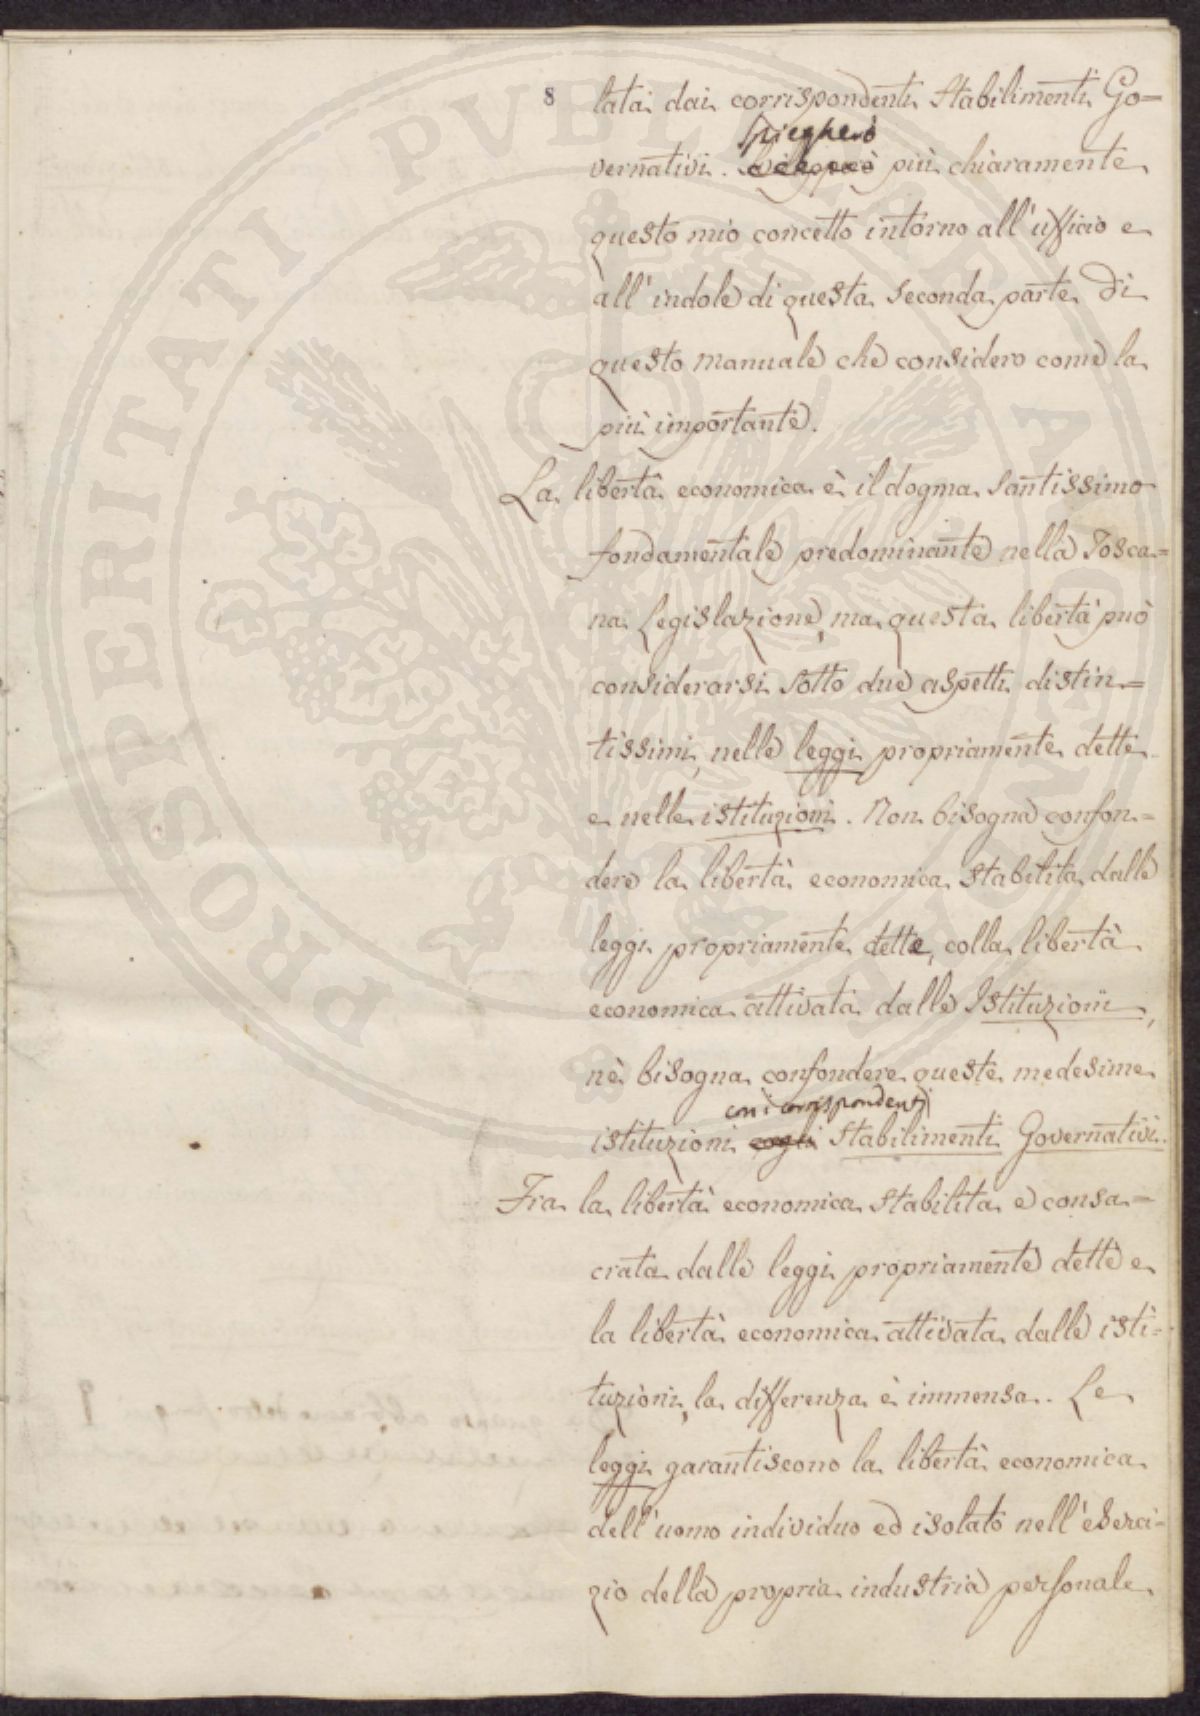 8
lata dai corrispondenti Stabilimenti Go=
spiegherò
vernativi. più chiaramente
questo mio concetto intorno all'ufficio e
all'indole di questa seconda parte di
questo manuale che considero come la
più importante.
La libertà economica è il dogma santissimo
fondamentale predominante nella Tosca=
na Legislazione, ma questa libertà può
considerarsi sotto due aspetti distin=
tissimi, nelle leggi propriamente dette
e nelle istituzioni. Non bisogna confon=
dere la libertà economica stabilita dalle
leggi propriamente dette, colla libertà
economica attivata dalle Istituzioni,
nè bisogna confondere queste medesime
con i corrispondenti
istituzioni cogli Stabilimenti Governativi.
Fra la libertà economica stabilita e consa=
crata dalle leggi propriamente dette e
la libertà economica attivata dalle isti=
tuzioni, la differenza è immensa. Le
leggi garantiscono la libertà economica
dell'uomo individuo ed isolato nell'eserci=
zio della propria industria personale
PROSPERITATI PVBLICAE AVGENDAE